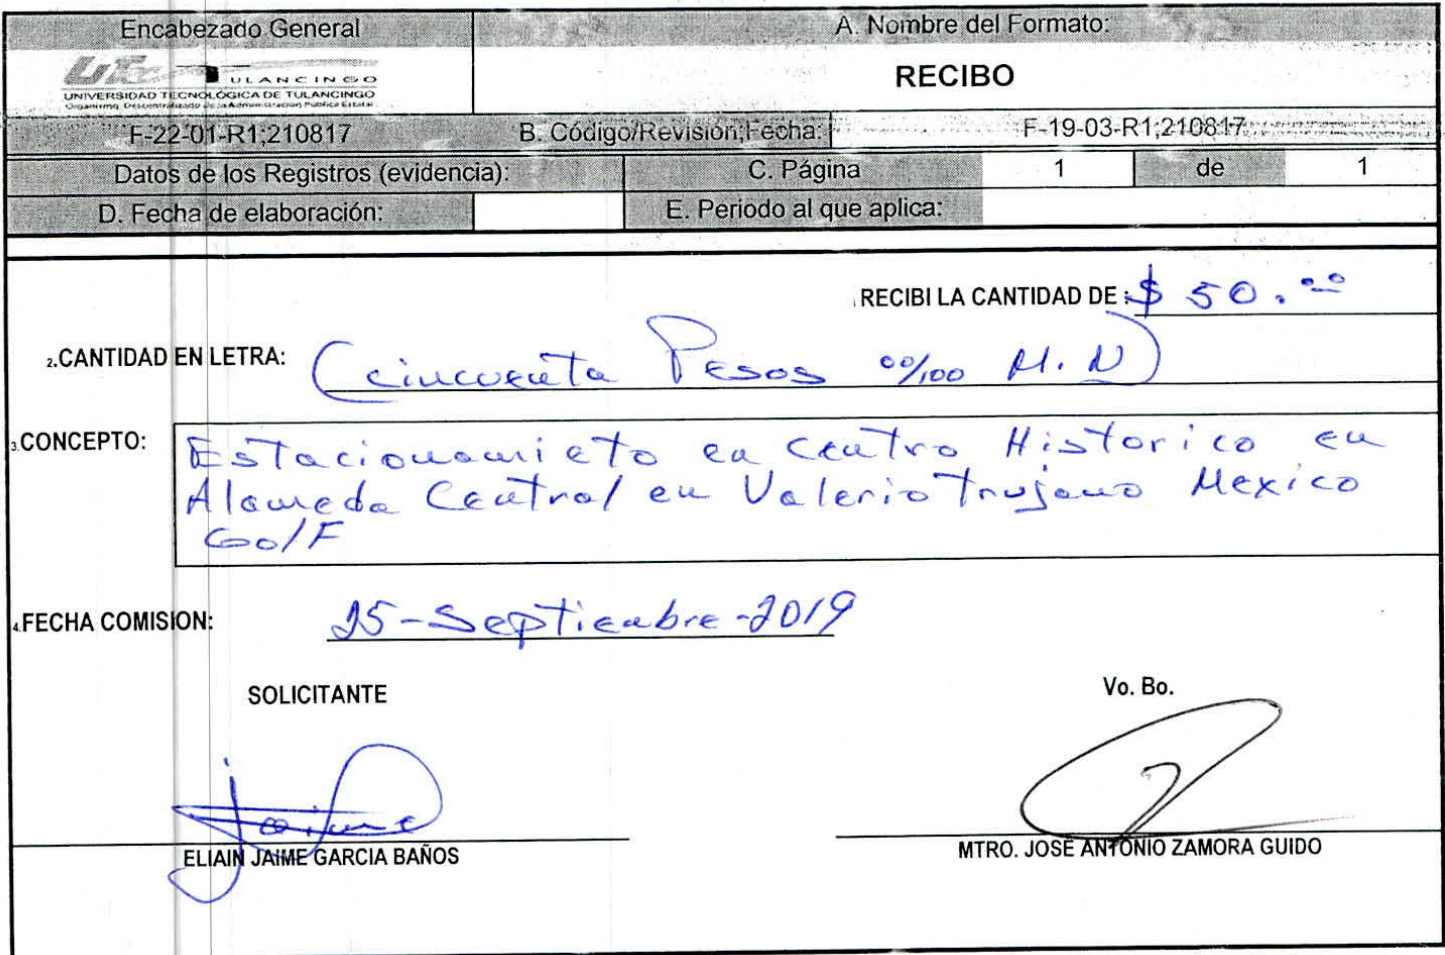 Encabezado General
A. Nombre del Formato:
ULANCINGO
UNIVERSIDAD TECNOLÓGICA DE TULANCINGO
Organismo Descentralizado de la Administración Pública Estatal
RECIBO
F-22-01-R1;210817
B. Código/Revisión;Fecha:
F-19-03-R1;210817
Datos de los Registros (evidencia):
C. Página
1
de
1
D. Fecha de elaboración:
E. Periodo al que aplica:
1.RECIBI LA CANTIDAD DE: $ 50.00
2.CANTIDAD EN LETRA: (cincuenta Pesos 00/100 M.N)
3.CONCEPTO: Estacionamieto en Centro Historico en
Alameda Central en Valerio Trujano Mexico
4.FECHA COMISION: 25-Septiembre-2019
SOLICITANTE
Vo. Bo.
Jaime
ELIAIN JAIME GARCIA BAÑOS
MTRO. JOSÉ ANTONIO ZAMORA GUIDO